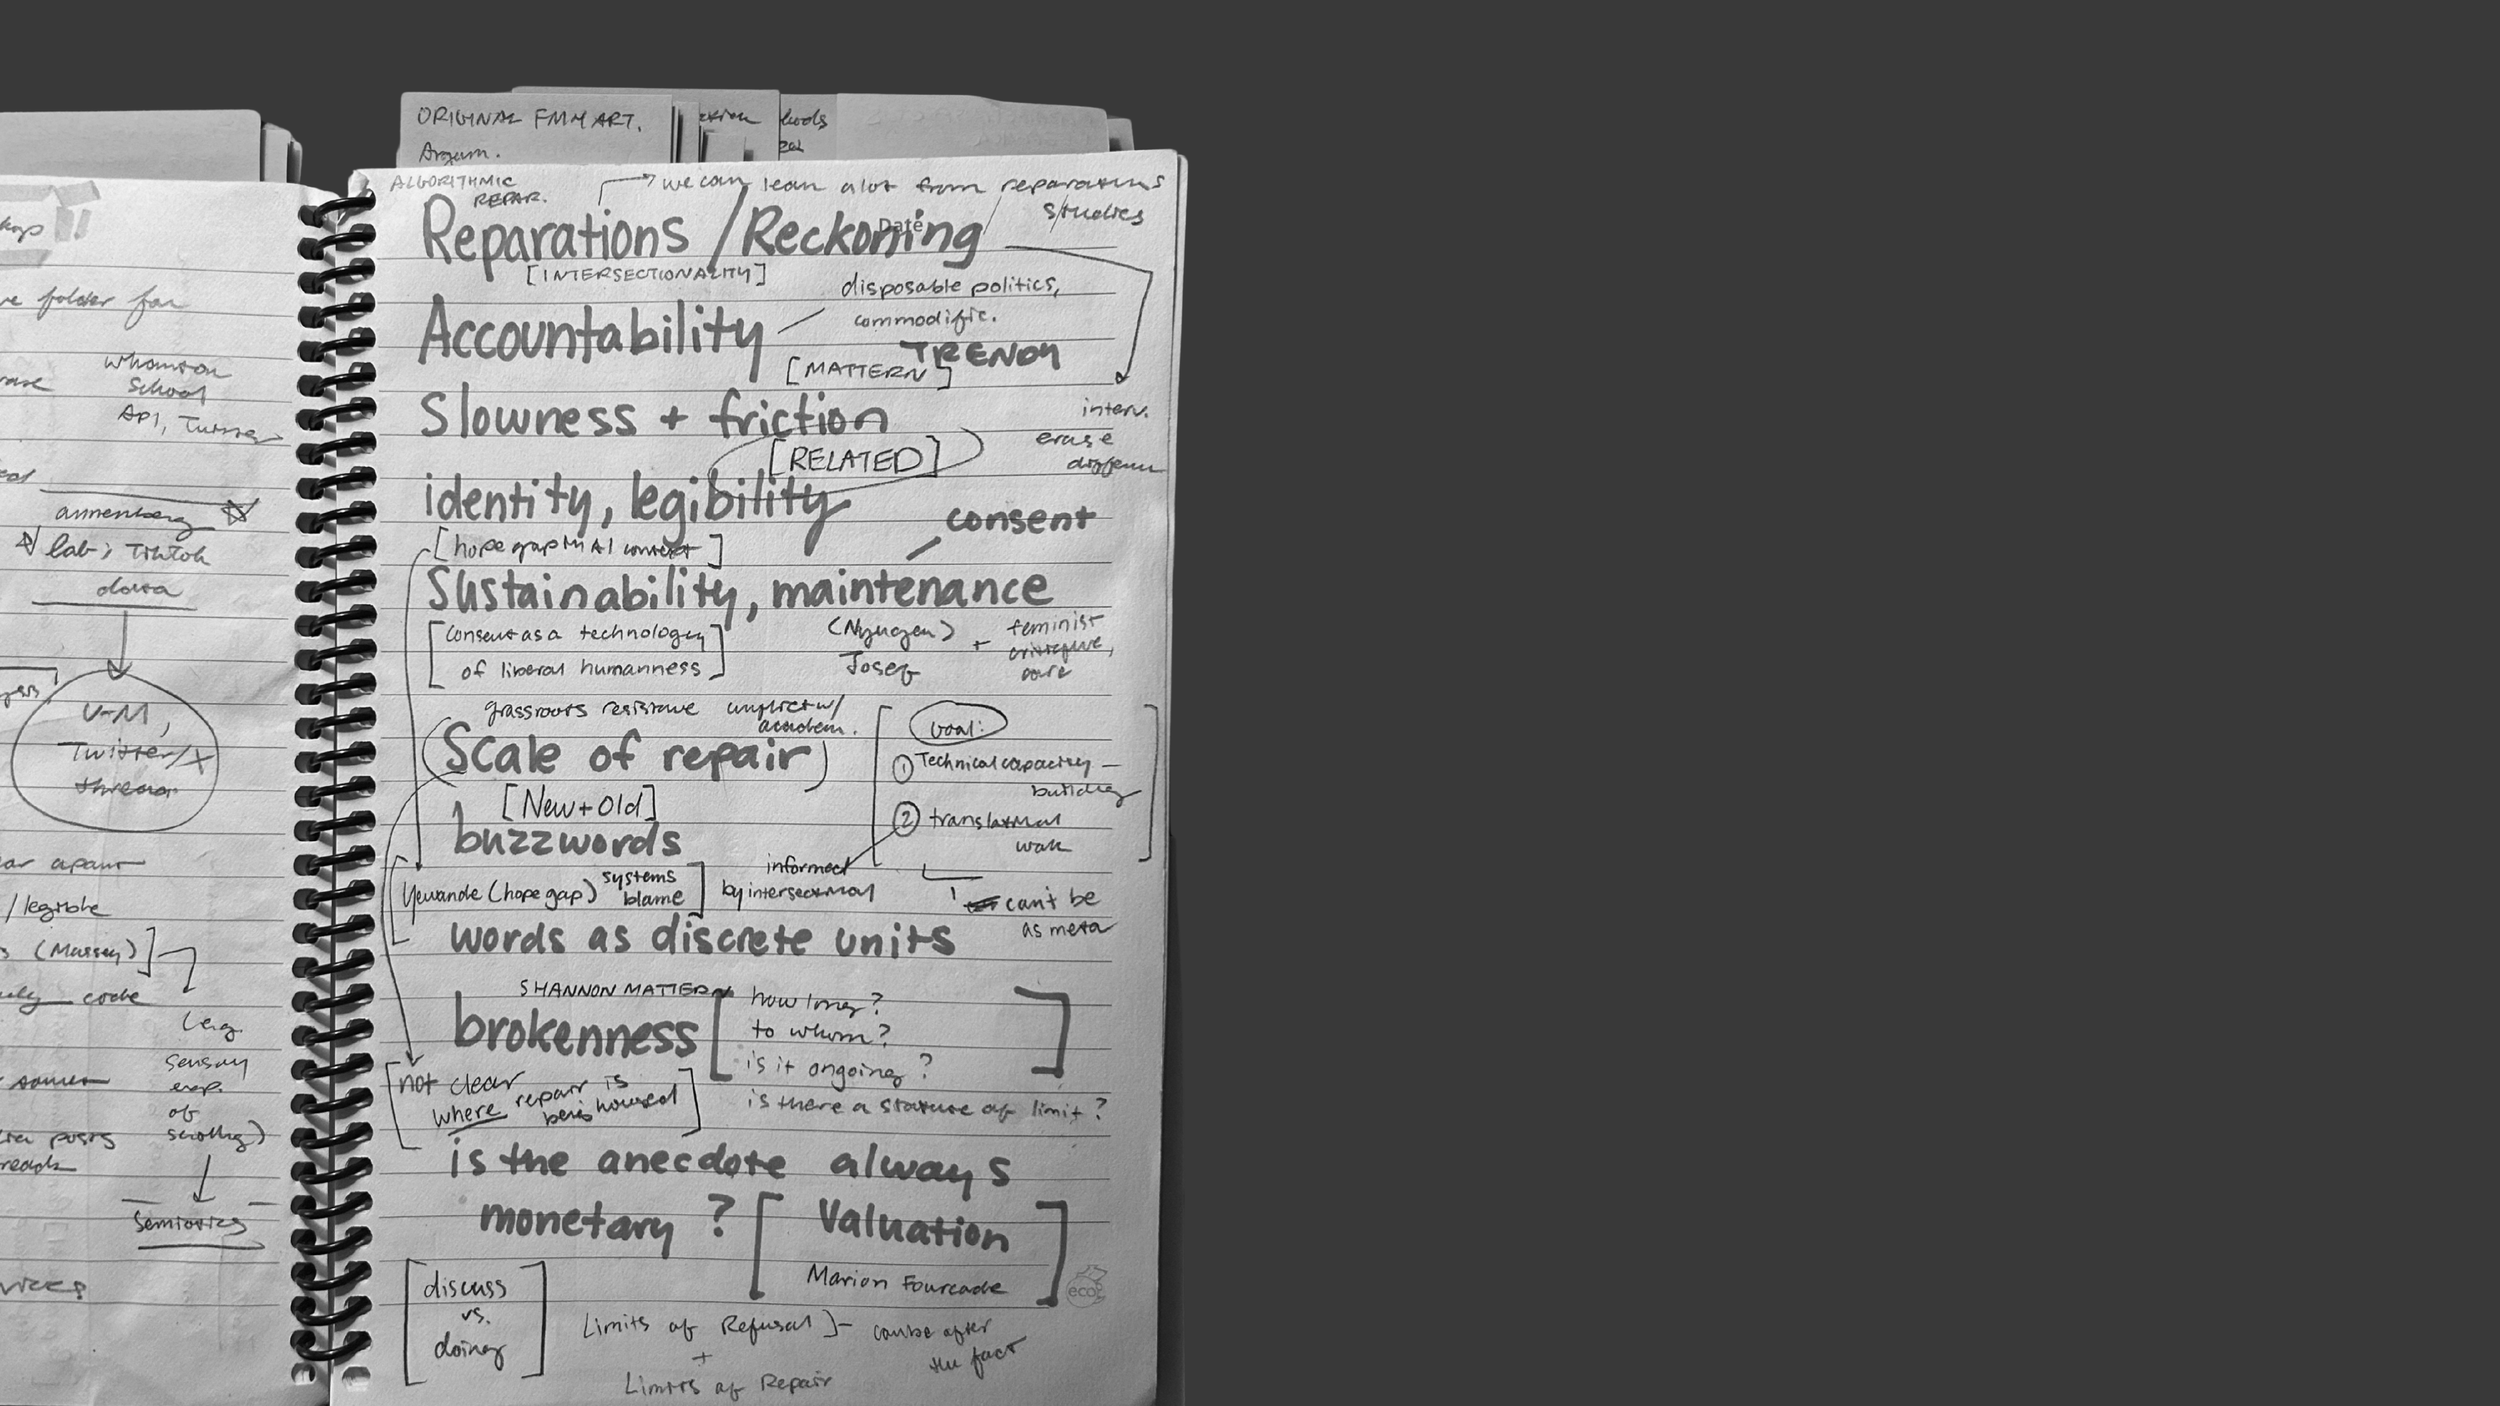 ORIGINAL FMM ART.
Argum.
ALGORITHMIC
REPAR.
we can lean a lot from reparations
studies
Date
Reparations / Reckoning
[INTERSECTIONALITY]
disposable politics,
commodific.
Accountability
TRENDY
[MATTERN]
Slowness + friction
interv.
erase
[RELATED]
identity, legibility
consent
[hope gap in AI context]
Sustainability, maintenance
[consent as a technology
of liberal humanness]
(Nyugen)
Josef
+ feminist
critique,
care
grassroots resistance conflict w/
academ.
(Scale of repair)
Goal:
① Technical capacity-
building
② translational
work
[New + Old]
buzzwords
informed
by intersectional
Yewande (hope gap) systems
blame
can't be
as meta
words as discrete units
SHANNON MATTERN
brokenness
how long?
to whom?
is it ongoing?
is there a stature of limit?
[not clear
where repair is
being housed]
is the anecdote always
monetary?
[Valuation
Marion Fourcade]
eco
[discuss
vs.
doing]
Limits of Refusal ]- can be after
the fact
+
Limits of Repair
folder for
Whanton
School
API,
annenberg
lab; TikTok
data
V-M,
Twitter/X
apart
/legible
(Massey)]
code
(eg.
sensory
exp.
of
scrolling)
posts
semiotics